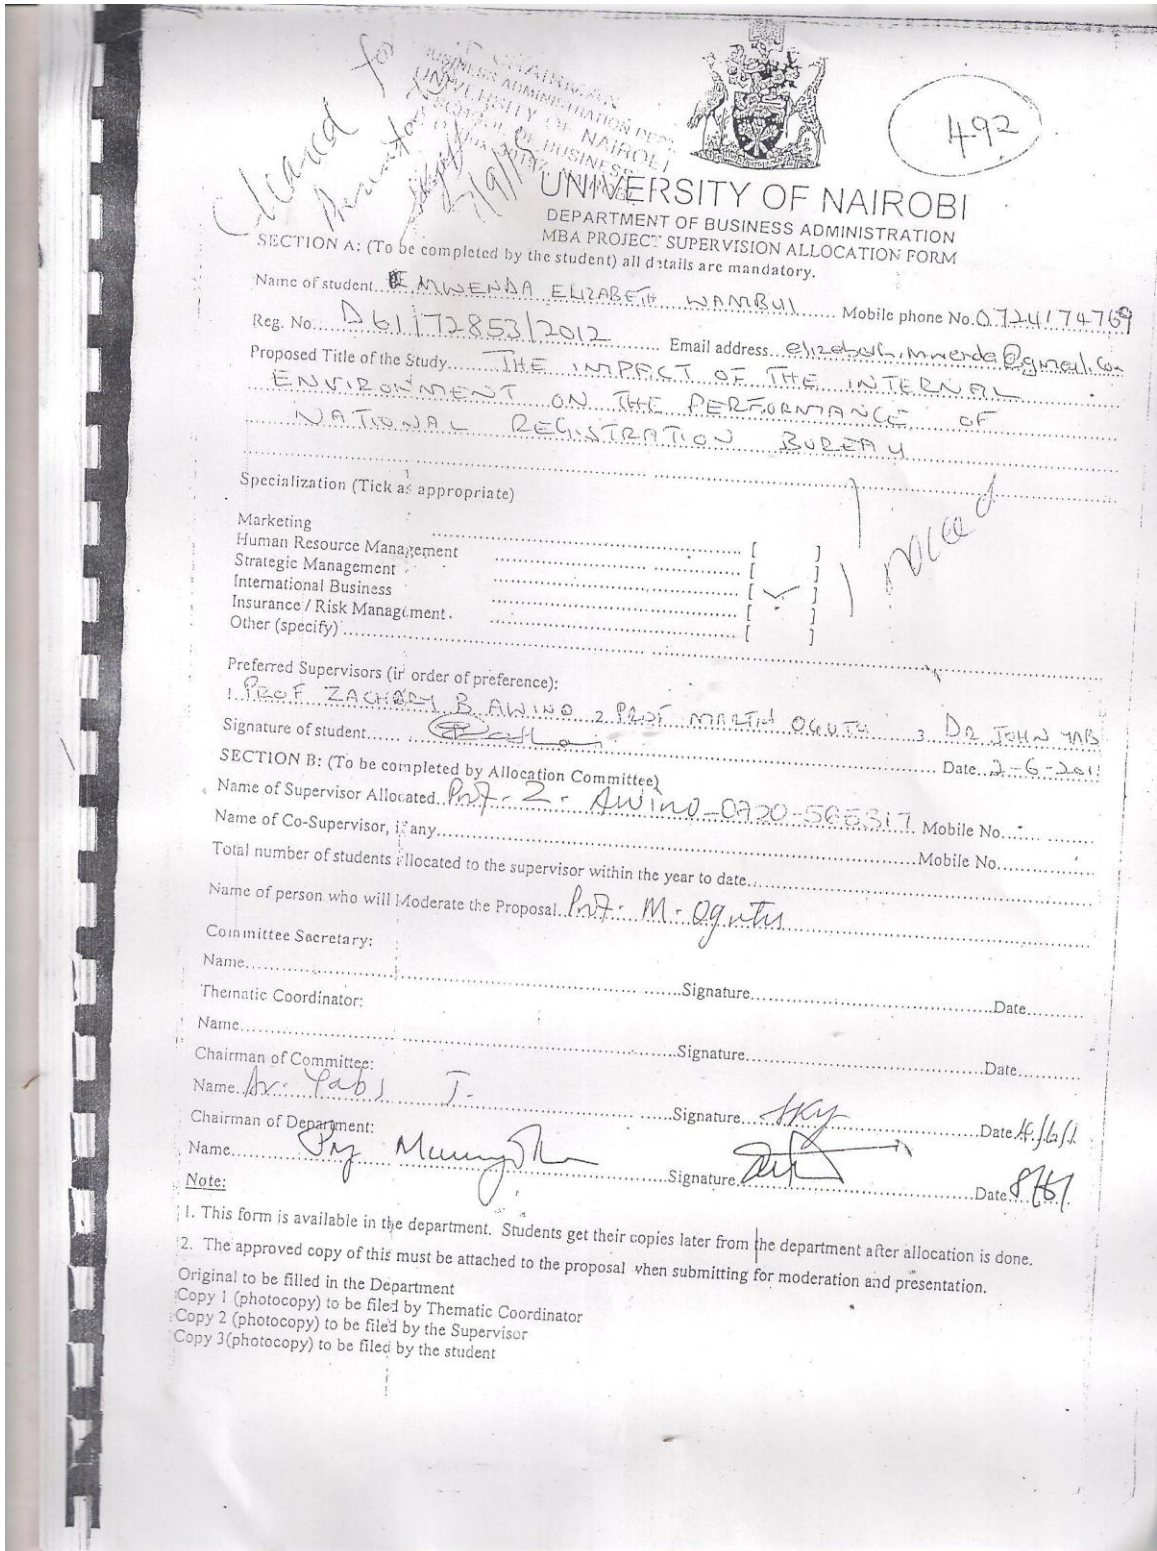 Cleared for
CHAIRMAN
BUSINESS ADMINISTRATION DEPT.
UNIVERSITY OF NAIROBI
SCHOOL OF BUSINESS
492
UNIVERSITY OF NAIROBI
DEPARTMENT OF BUSINESS ADMINISTRATION
MBA PROJECT SUPERVISION ALLOCATION FORM
SECTION A: (To be completed by the student) all details are mandatory.
Name of student MWENDA ELIZABETH WAMBUI Mobile phone No. 0724174769
Reg. No. D61/72853/2012 Email address elizabeth.mwenda@gmail.com
Proposed Title of the Study THE IMPACT OF THE INTERNAL
ENVIRONMENT ON THE PERFORMANCE OF
NATIONAL REGISTRATION BUREAU
Specialization (Tick as appropriate)
Marketing [ ]
Human Resource Management [ ]
Strategic Management [ ✓ ]
International Business [ ]
Insurance / Risk Management [ ]
Other (specify)
Preferred Supervisors (in order of preference):
1. PROF ZACHARY B. AWINO 2 PROF MARTIN OGUTU 3 DR JOHN YAB
Signature of student Date 2-6-201
SECTION B: (To be completed by Allocation Committee)
Name of Supervisor Allocated Prof. Z. AWINO Mobile No.
Name of Co-Supervisor, if any Mobile No.
Total number of students allocated to the supervisor within the year to date
Name of person who will Moderate the Proposal Prof. M. Ogutu
Committee Secretary:
Name Signature Date
Thematic Coordinator:
Name Signature Date
Chairman of Committee:
Name Dr. Yabs J. Signature Date
Chairman of Department:
Name Signature Date
Note:
1. This form is available in the department. Students get their copies later from the department after allocation is done.
2. The approved copy of this must be attached to the proposal when submitting for moderation and presentation.
Original to be filled in the Department
Copy 1 (photocopy) to be filed by Thematic Coordinator
Copy 2 (photocopy) to be filed by the Supervisor
Copy 3(photocopy) to be filed by the student